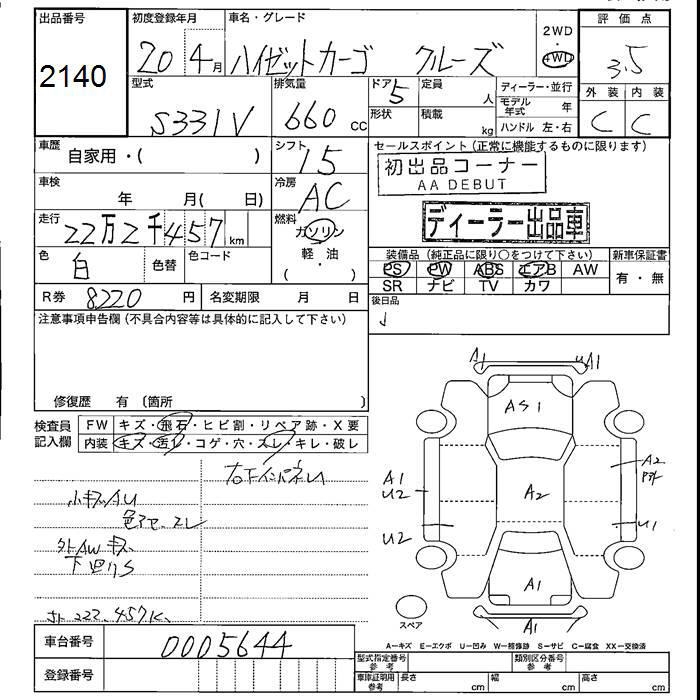 出品番号
2140
初度登録年月
20 4月
車名・グレード
ハイゼットカーゴ クルーズ
2WD
4WD
評価点
3.5
外装 内装
C C
型式
S331V
排気量
660 cc
ドア
5
形状
定員
人
積載
kg
ディーラー・並行
モデル年式 年
ハンドル 左・右
車歴
自家用・( )
シフト
I5
セールスポイント(正常に機能するものに限ります)
初出品コーナー
AA DEBUT
ディーラー出品車
車検
年 月( 日)
冷房
AC
走行
22万2千457km
燃料
ガソリン
軽・油
( )
色
白
色替
色コード
装備品(純正品に限り○をつけて下さい)
PS PW ABS エアB AW
SR ナビ TV カワ
新車保証書
有・無
R券 8220 円
名変期限 月 日
後日品
注意事項申告欄(不具合内容等は具体的に記入して下さい)
修復歴 有 〔箇所 〕
検査員
記入欄
FW キズ・飛石・ヒビ割・リペア跡・X要
内装 キズ・汚レ・コゲ・穴・スレ・キレ・破レ
小キズAU
外AWキズ
下廻りS
222.457K
A1
A1
AS1
A1
U2
A2
A2
U2
U1
A1
A1
スペア
A−キズ E−エクボ U−凹み W−補修跡 S−サビ C−腐食 XX−交換済
車台番号 0005644
登録番号
型式指定番号
参考
類別区分番号
参考
車庫証明用
参考
長さ cm
幅 cm
高さ cm